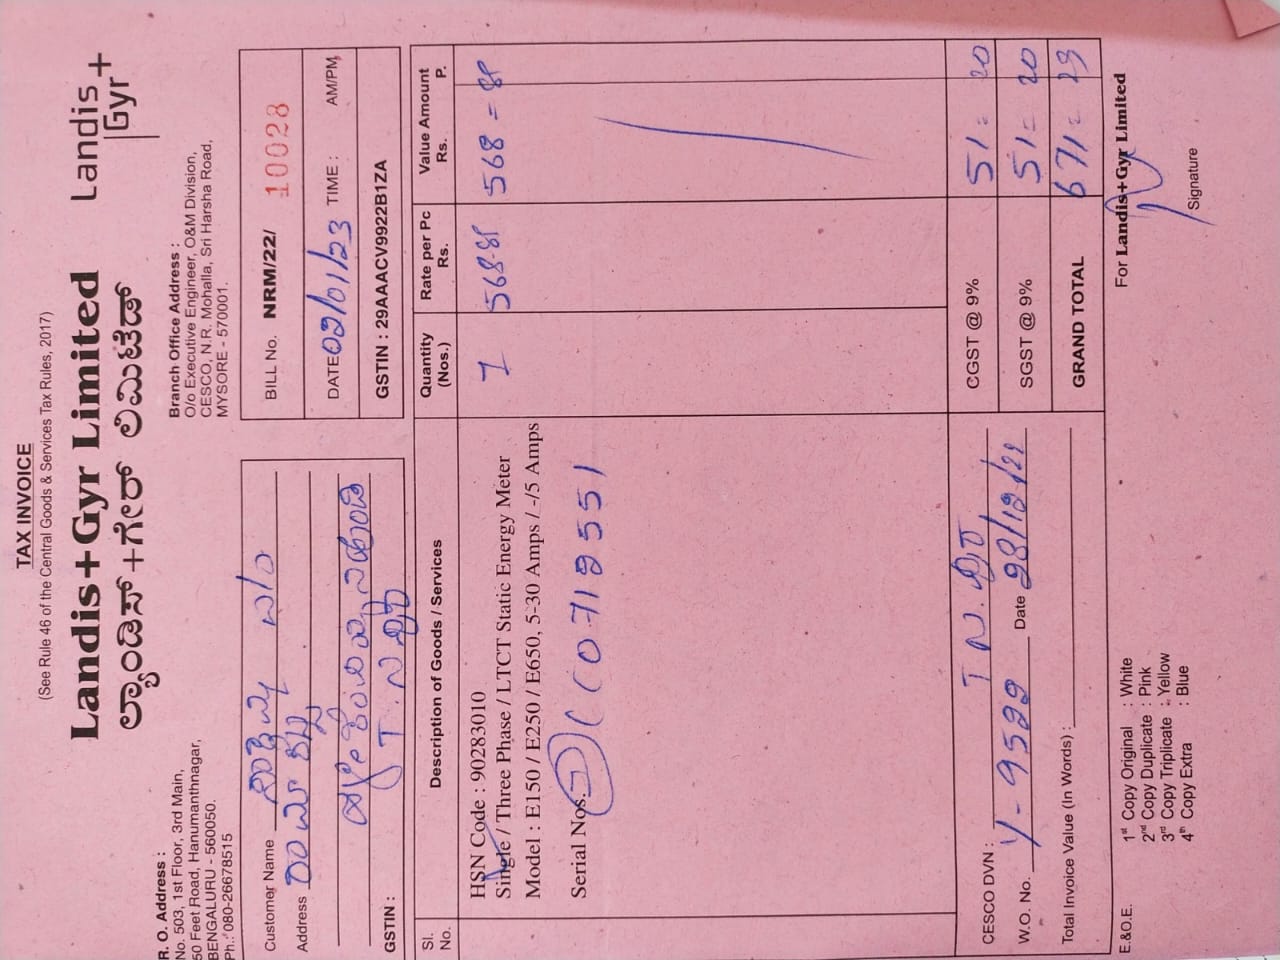 TAX INVOICE
(See Rule 46 of the Central Goods & Services Tax Rules, 2017)
Landis+Gyr Limited
Landis Gyr+
ಲ್ಯಾಂಡಿಸ್+ಗೇರ್ ಲಿಮಿಟೆಡ್
R. O. Address :
No. 503, 1st Floor, 3rd Main,
50 Feet Road, Hanumanthnagar,
BENGALURU - 560050.
Ph.: 080-26678515
Branch Office Address :
O/o Executive Engineer, O&M Division,
CESCO, N.R. Mohalla, Sri Harsha Road,
MYSORE - 570001.
Customer Name
Address
GSTIN :
BILL No. NRM/22/ 10028
DATE 02/01/23 TIME : AM/PM
GSTIN : 29AAACV9922B1ZA
Sl. No. Description of Goods / Services Quantity (Nos.) Rate per Pc Rs. Value Amount Rs. P.
HSN Code : 90283010 1 568.88 568 = 88
Single / Three Phase / LTCT Static Energy Meter
Model : E150 / E250 / E650, 5-30 Amps / -/5 Amps
Serial Nos.
CESCO DVN : CGST @ 9% 51 = 20
W.O. No. Y-9522 Date 28/12/22 SGST @ 9% 51 = 20
Total Invoice Value (In Words) : GRAND TOTAL 671 = 29
E.&O.E.
1st Copy Original : White
2nd Copy Duplicate : Pink
3rd Copy Triplicate : Yellow
4th Copy Extra : Blue
For Landis+Gyr Limited
Signature